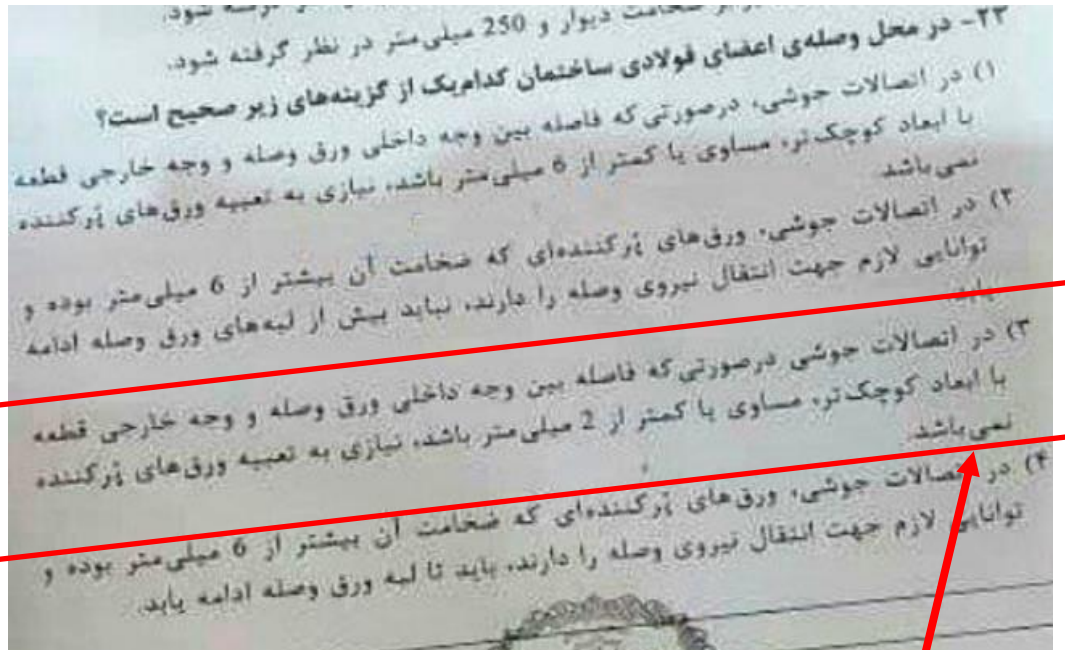 شود.
ضخامت دیوار و 250 میلی‌متر در نظر گرفته شود.
۲۳- در محل وصله‌ی اعضای فولادی ساختمان کدام‌یک از گزینه‌های زیر صحیح است؟
۱) در اتصالات جوشی، درصورتی‌که فاصله بین وجه داخلی ورق وصله و وجه خارجی قطعه
با ابعاد کوچک‌تر، مساوی یا کمتر از 6 میلی‌متر باشد، نیازی به تعبیه ورق‌های پُرکننده
نمی‌باشد.
۲) در اتصالات جوشی، ورق‌های پُرکننده‌ای که ضخامت آن بیشتر از 6 میلی‌متر بوده و
توانایی لازم جهت انتقال نیروی وصله را دارند، نباید بیش از لبه‌های ورق وصله ادامه
یابد.
۳) در اتصالات جوشی درصورتی‌که فاصله بین وجه داخلی ورق وصله و وجه خارجی قطعه
با ابعاد کوچک‌تر، مساوی یا کمتر از 2 میلی‌متر باشد، نیازی به تعبیه ورق‌های پُرکننده
نمی‌باشد.
۴) در اتصالات جوشی، ورق‌های پُرکننده‌ای که ضخامت آن بیشتر از 6 میلی‌متر بوده و
توانایی لازم جهت انتقال نیروی وصله را دارند، باید تا لبه ورق وصله ادامه یابد.